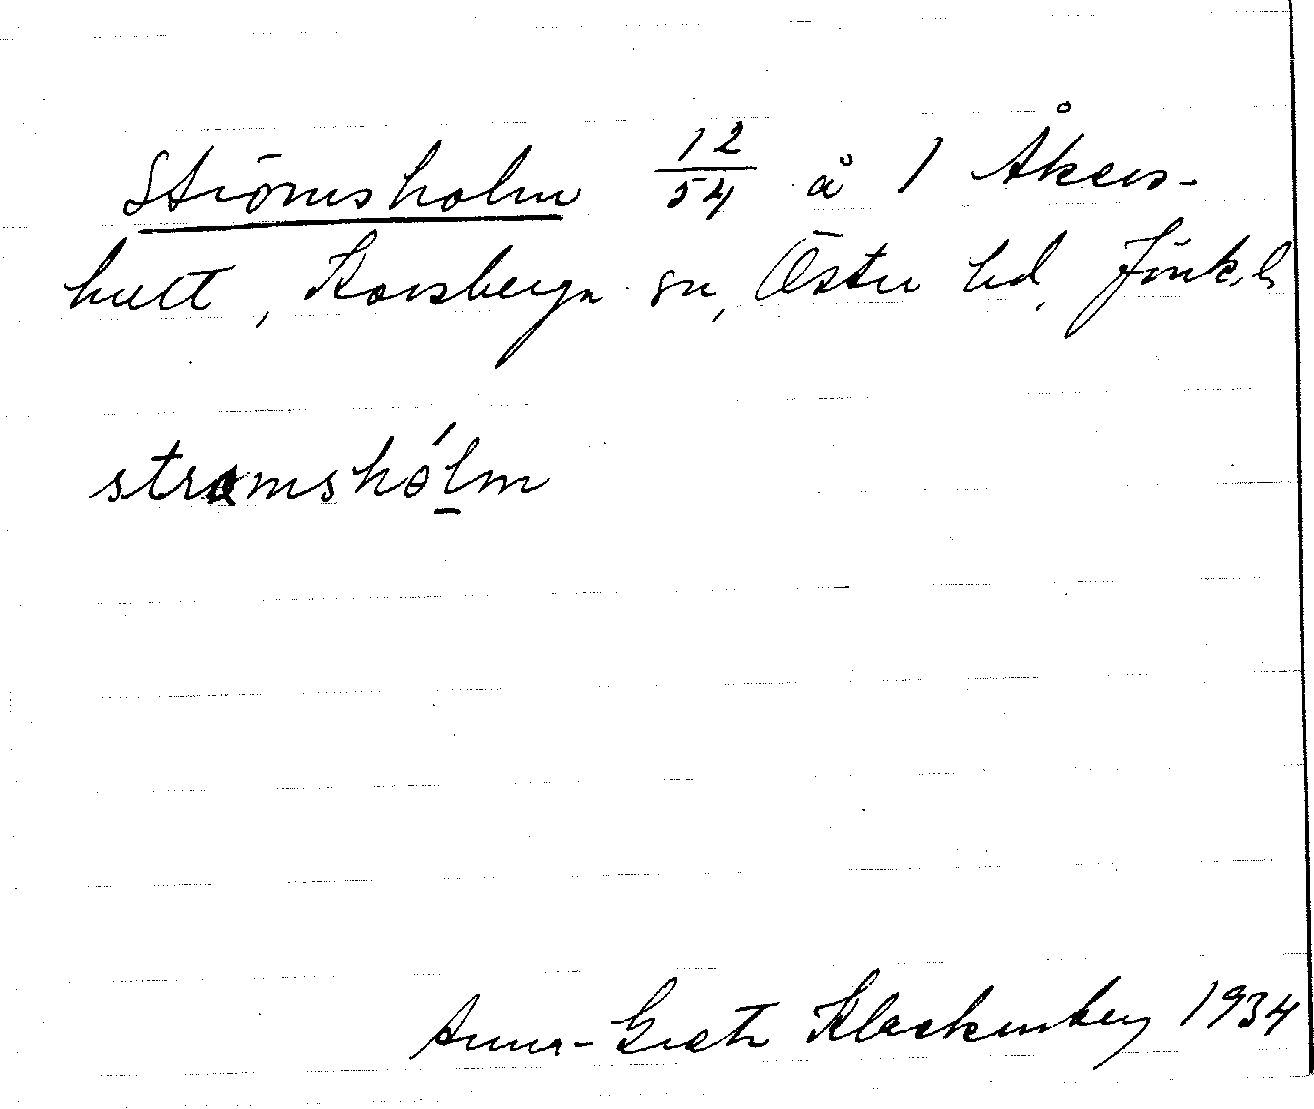 Strömsholm 12/54 å 1 Åkers-
hult, Korsberga sn, Östra hd, Jönk. l.
strømshólm
Anna-Greta Klackenberg 1934